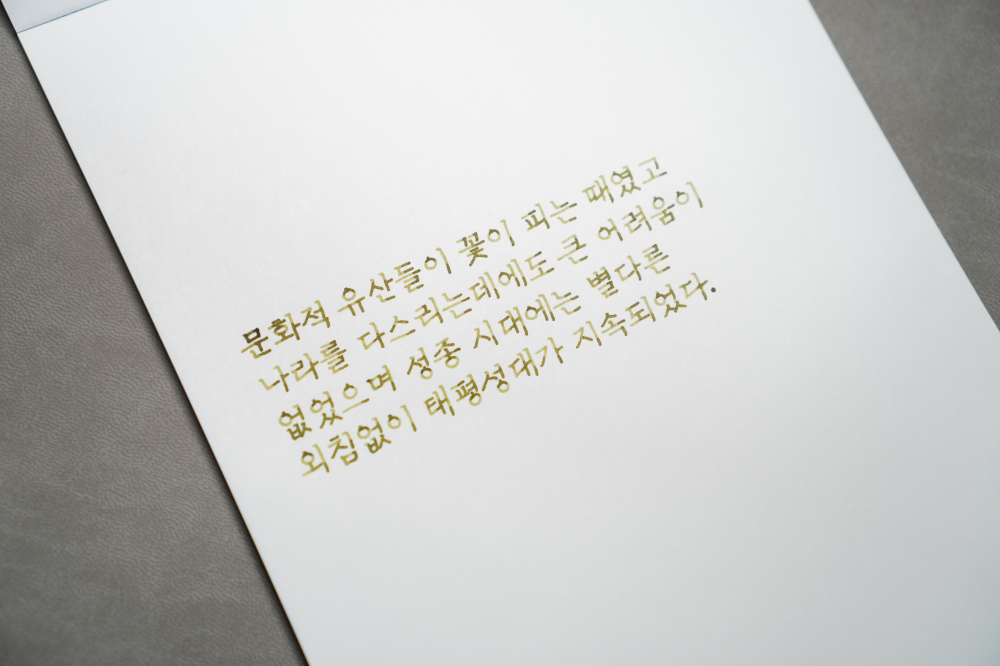 문화적 유산들이 꽃이 피는 때였고
나라를 다스리는데에도 큰 어려움이
없었으며 성종 시대에는 별다른
외침없이 태평성대가 지속되었다.